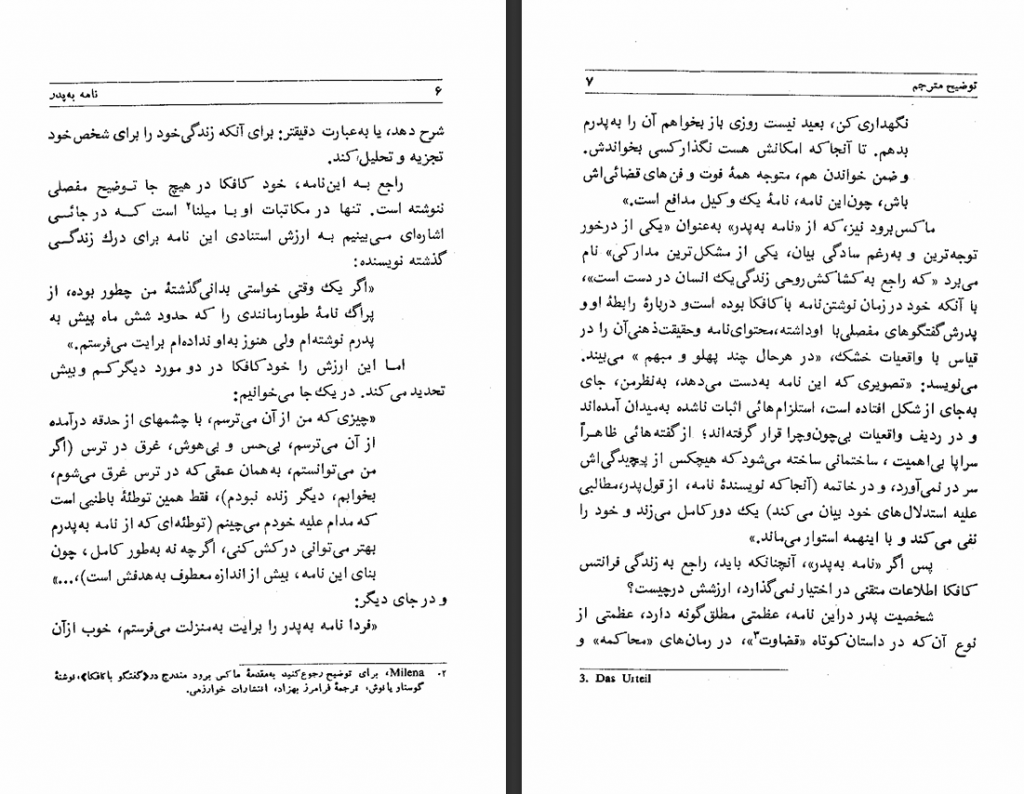 ۶
نامه به‌پدر
شرح دهد، یا به‌عبارت دقیقتر: برای آنکه زندگی‌خود را برای شخص‌خود
تجزیه و تحلیل‌کند.
راجع بـه این‌نامه، خود کافکا در هیچ جا تـوضیح مفصلی
ننوشته است. تنها در مکاتبات او بـا میلنا۲ است کـه در جائی
اشاره‌ای می‌بینیم بـه ارزش استنادی این نامه برای درك زندگـی
گذشته نویسنده:
«اگر یك وقتی خواستی بدانی‌گذشتهٔ من چطور بوده، از
پراگ نامهٔ طومارمانندی را که حدود شش ماه پیش به
پدرم نوشته‌ام ولی هنوز به‌او نداده‌ام برایت می‌فرستم.»
امـا این ارزش را خود کافکا در دو مورد دیگرکـم و بیش
تحدید می‌کند. در یك‌جا می‌خوانیم:
«چیزی‌که من از آن می‌ترسم، با چشمهای از حدقه درآمده
از آن می‌ترسم، بی‌حس و بی‌هوش، غرق در ترس (اگر
من می‌توانستم، به‌همان عمقی‌که در ترس غرق می‌شوم،
بخوابم، دیگر زنده نبودم)، فقط همین توطئهٔ باطنیی است
که مدام علیه خودم می‌چینم (توطئه‌ای‌که از نامه به‌پدرم
بهتر می‌توانی درکش‌کنی، اگرچه نه به‌طور کامل، چون
بنای این نامه، بیش از اندازه معطوف به‌هدفش است)،...»
و در جای دیگر:
«فردا نامه به‌پدر را برایت به‌منزلت می‌فرستم، خوب ازآن
۲. Milena، برای توضیح رجوع‌کنید به‌مقدمهٔ ماکس برود مندرج در«گفتگو با کافکا»، نوشتهٔ
گوستاو یانوش، ترجمهٔ فرامرز بهزاد، انتشارات خوارزمی.
توضیح مترجم
۷
نگهداری‌کن، بعید نیست روزی باز بخواهم آن را به‌پدرم
بدهم. تا آنجاکه امکانش هست نگذارکسی بخواندش.
و ضمن خواندن هم، متوجه همهٔ فوت و فن‌های قضائی‌اش
باش، چون‌این نامه، نامهٔ یك وکیل مدافع است.»
ماکس‌برود نیز،که از «نامه به‌پدر» به‌عنوان «یکی از درخور
توجه‌ترین و به‌رغم سادگی بیان، یکی از مشکل‌ترین مدارکی» نام
می‌برد «که راجع به‌کشاکش‌روحی زندگی‌یك انسان در دست است»،
با آنکه خود در زمان نوشتن‌نامه باکافکا بوده است‌و دربارهٔ رابطهٔ او و
پدرش‌گفتگوهای مفصلی‌با او داشته،محتوای‌نامه وحقیقت‌ذهنی‌آن را در
قیاس با واقعیات خشك، «در هرحال چند پهلو و مبهم» می‌بیند.
می‌نویسد: «تصویری که این نامه به‌دست می‌دهد، به‌نظرمن، جای
به‌جای از شکل افتاده است، استلزام‌هائی اثبات ناشده به‌میدان آمده‌اند
و در ردیف واقعیات بی‌چون‌وچرا قرار گرفته‌اند؛ ازگفته‌هائی ظاهـراً
سراپا بی‌اهمیت، ساختمانی ساخته می‌شود که هیچکس از پیچیدگی‌اش
سر در نمی‌آورد، و در خاتمه (آنجاکه نویسندهٔ نامه، از قول‌پدر،مطالبی
علیه استدلال‌های خود بیان می‌کند) یك دورکامل می‌زند و خود را
نفی می‌کند و با اینهمه استوار می‌ماند.»
پس اگر «نامه به‌پدر»، آنچنانکه باید، راجع به زندگی فرانتس
کافکا اطلاعات متقنی در اختیار نمی‌گذارد، ارزشش درچیست؟
شخصیت پدر دراین نامه، عظمتی مطلق‌گونه دارد، عظمتی از
نوع آن‌که در داستان‌کوتاه «قضاوت۳»، در رمان‌های «محاکمه» و
3. Das Urteil